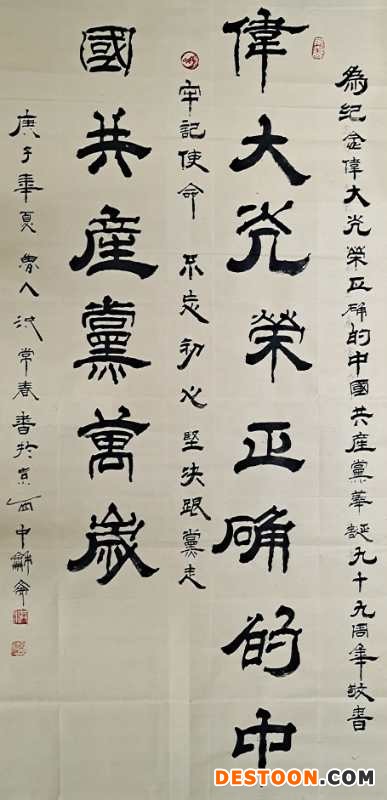 為紀念偉大光榮正确的中國共產黨華誕九十九周年敬書
偉大光榮正确的中
牢記使命 不忘初心 堅决跟黨走
國共產黨萬歲
庚子年夏 魯人池常春書於京西中龢
DESTOON.COM